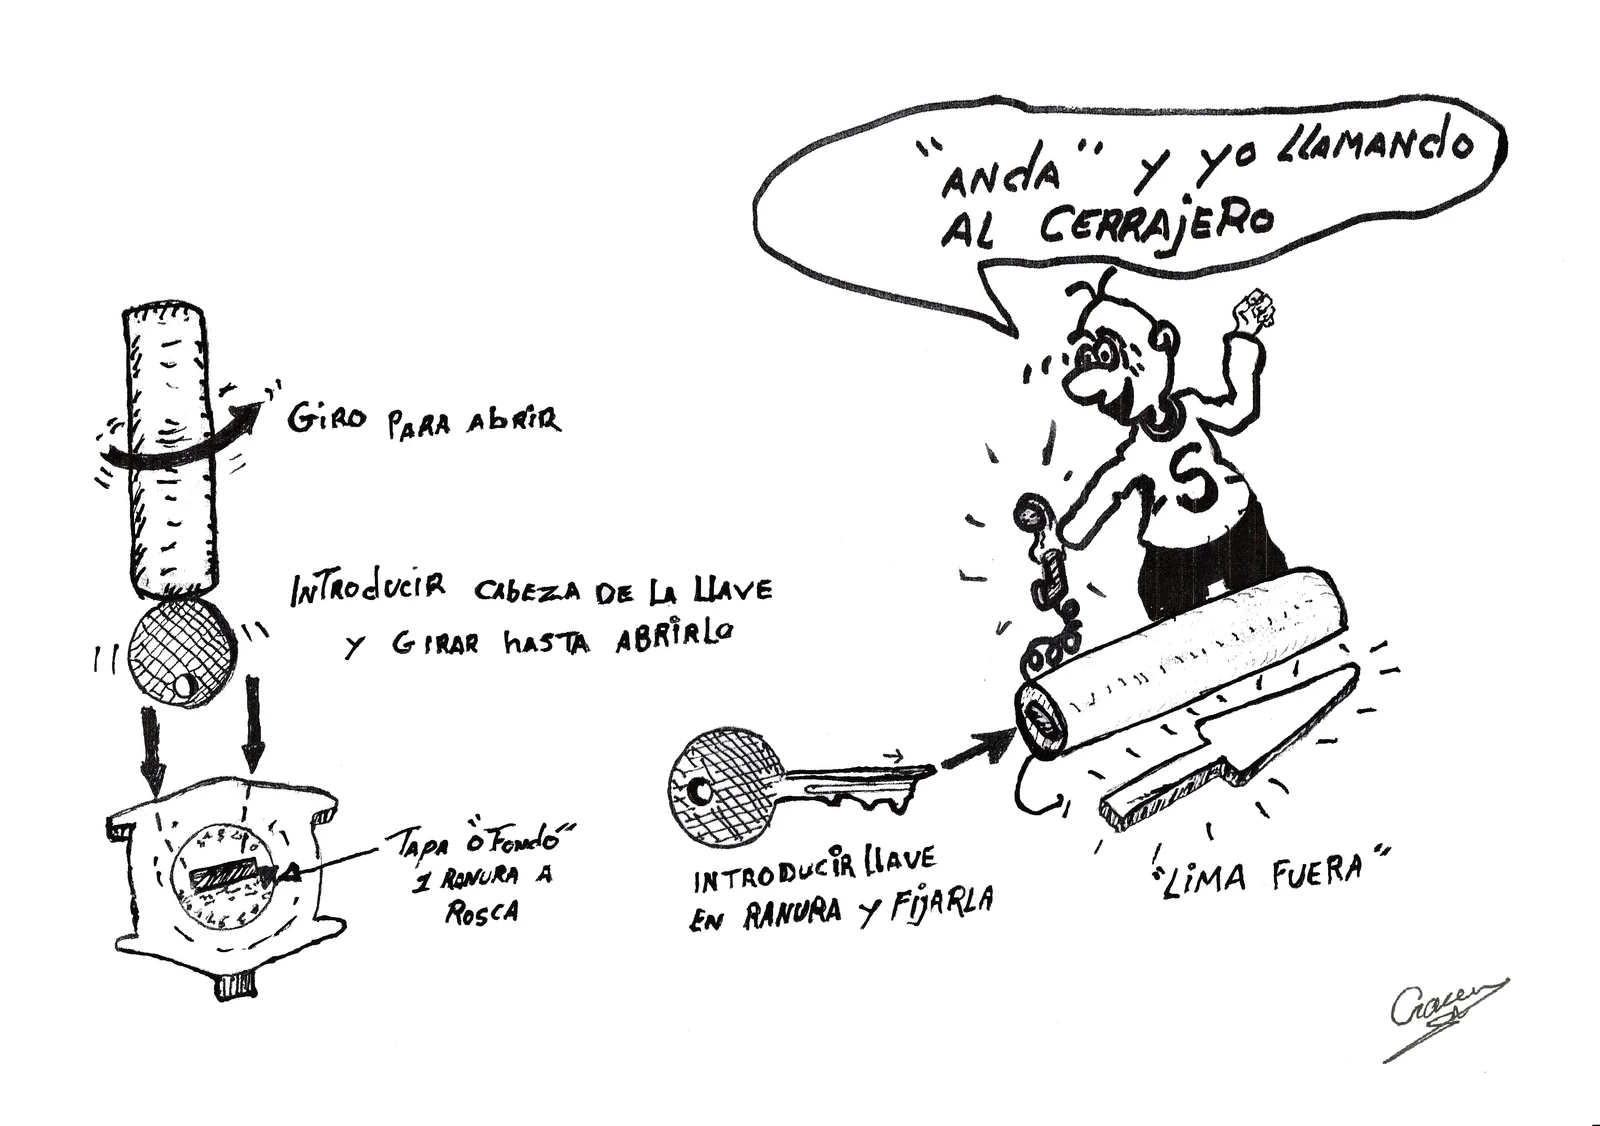 "ANdA" y yo llAMANdo
AL CERRAjERO
GiRO PARA AbRiR
INTROducIR CABEZA DE LA LLAVE
y GIRAR hASTA ABRIRLO
TAPA "Ó FONDO"
1 RANURA A
ROSCA
INTRODUCIR llAVE
EN RANURA y FijARLA
"LiMA FUERA"
S